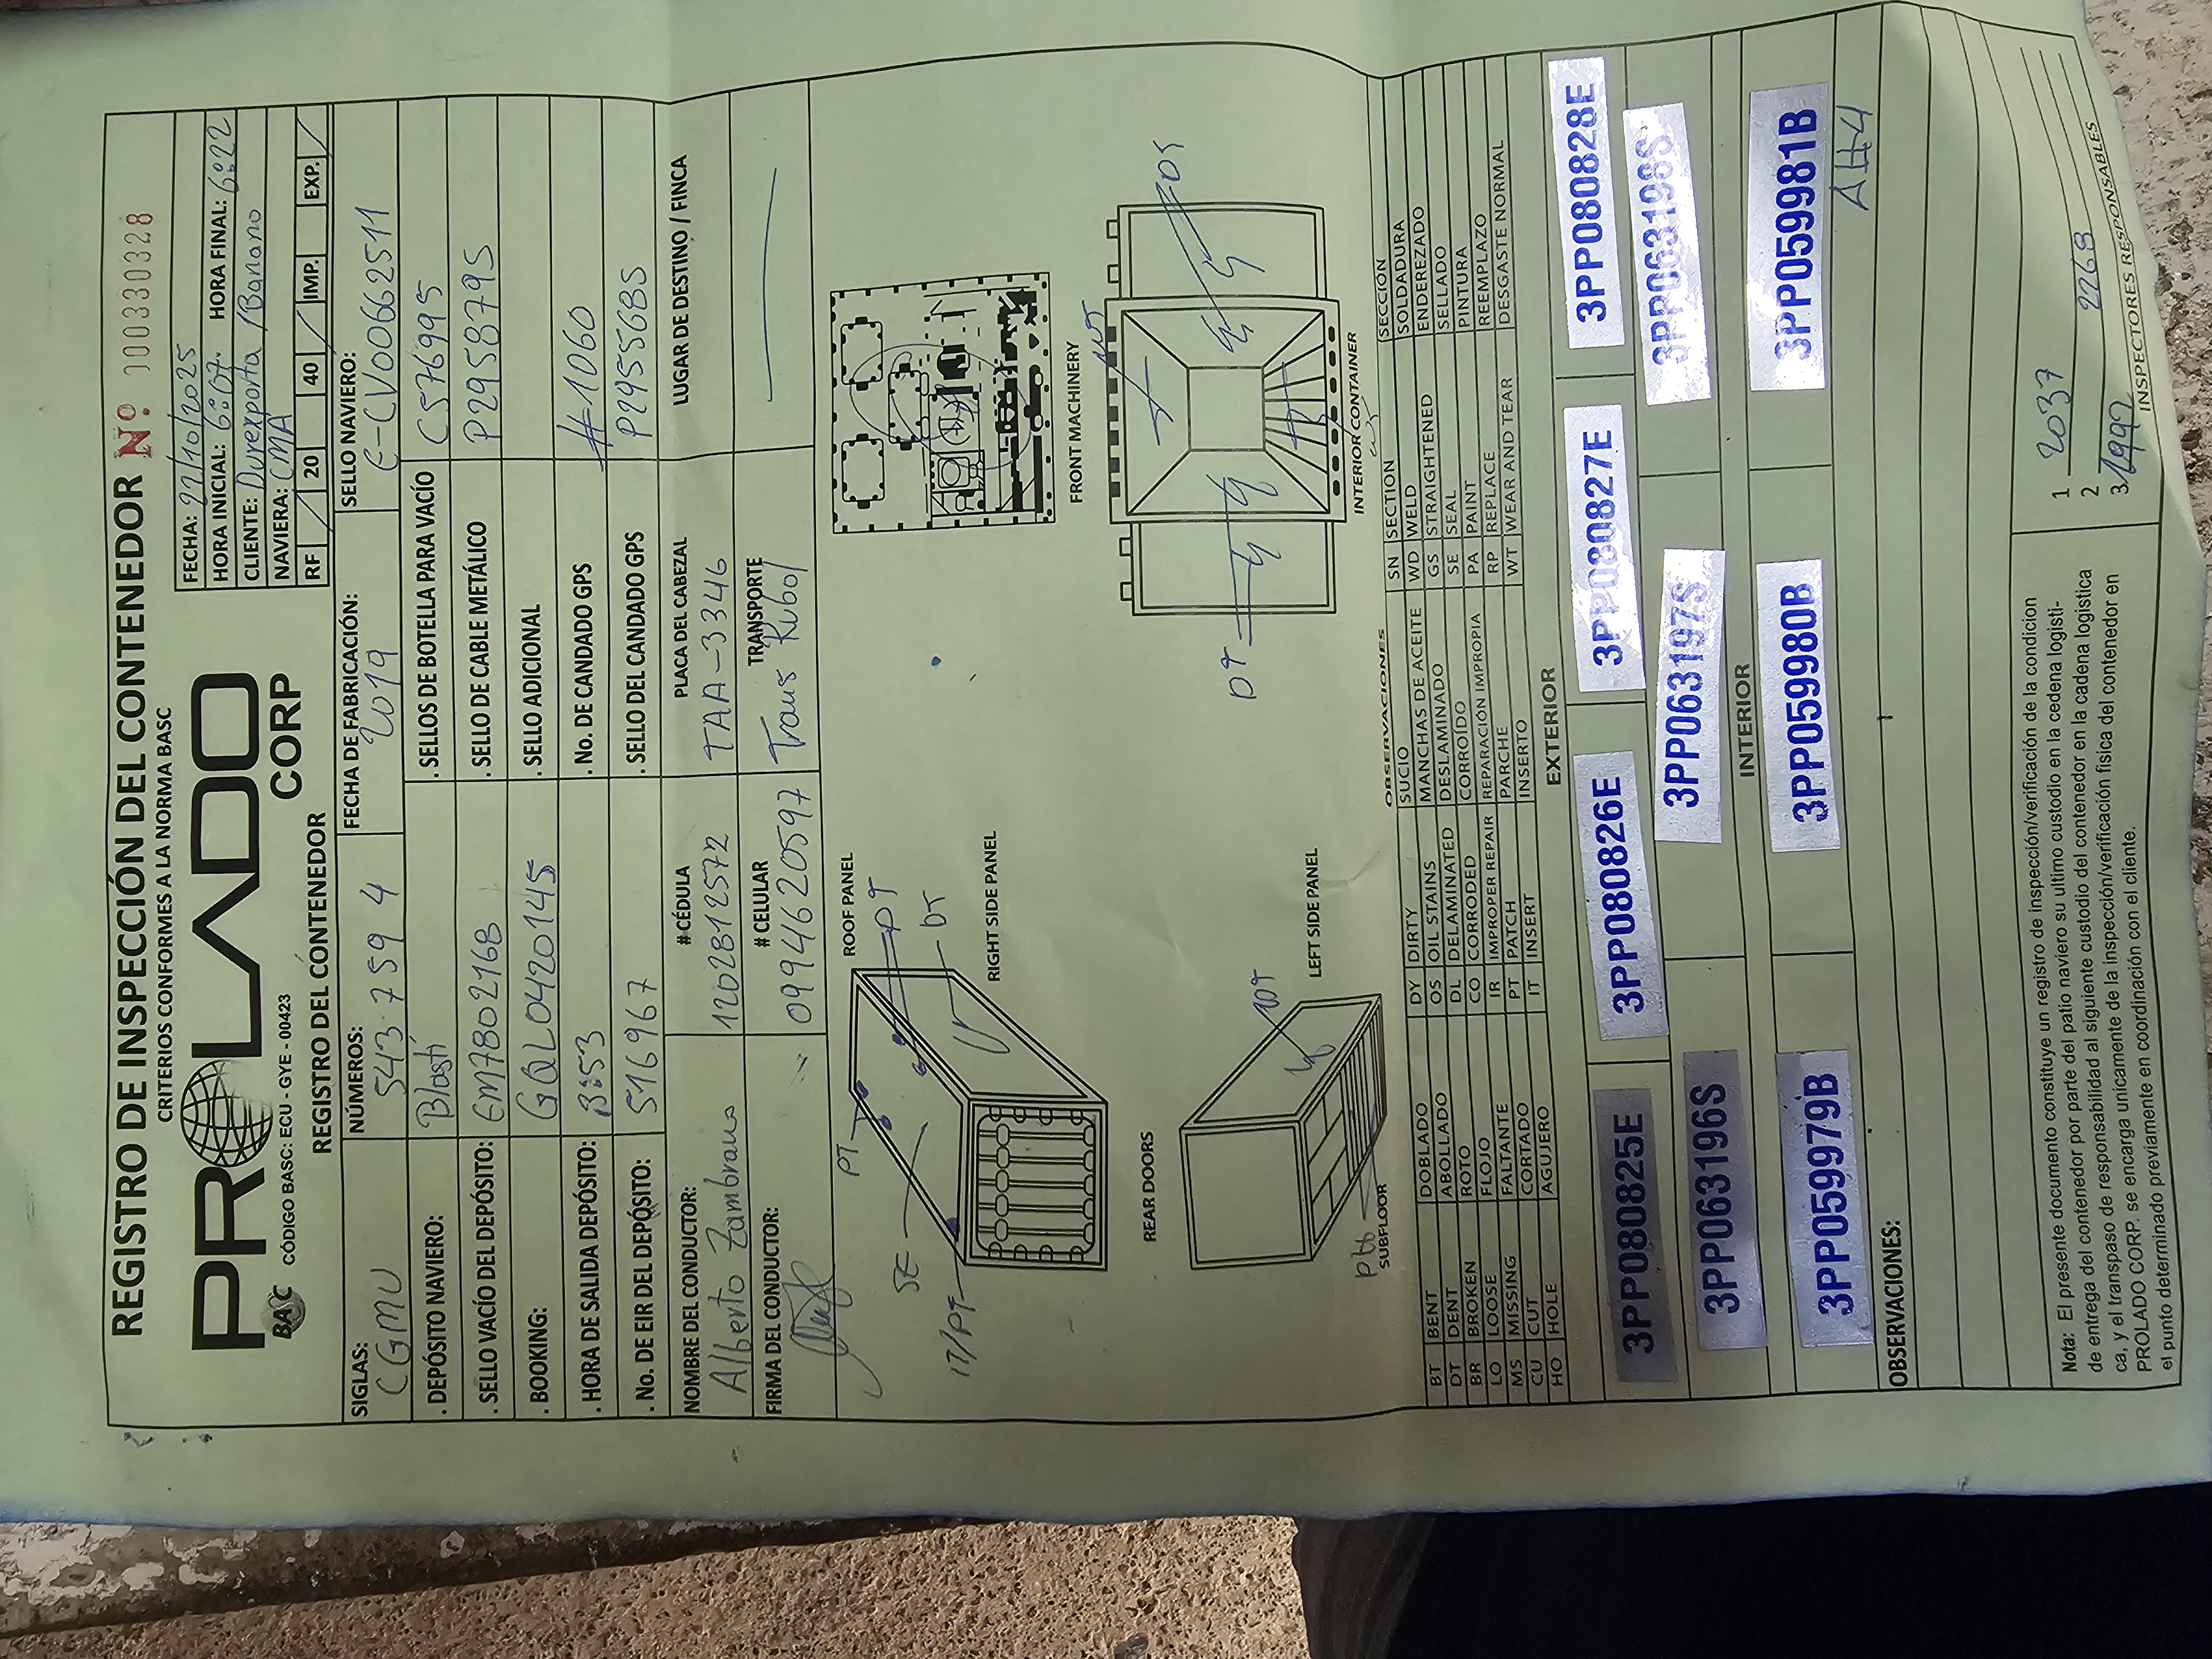 REGISTRO DE INSPECCIÓN DEL CONTENEDOR Nº 000330328
CRITERIOS CONFORMES A LA NORMA BASC
PROLADO CORP
BASC CÓDIGO BASC: ECU - GYE - 00423
FECHA: 27/10/2025
HORA INICIAL: 6:07. HORA FINAL: 6:22
CLIENTE: Durexporta / Banano
NAVIERA: CMA
RF / 20 40 / IMP. EXP. /
REGISTRO DEL CONTENEDOR
SIGLAS: CGMU NÚMEROS: 543 759 4 FECHA DE FABRICACIÓN: 2019 SELLO NAVIERO: E-CV00662511
. DEPÓSITO NAVIERO: Blasti . SELLOS DE BOTELLA PARA VACÍO C576995
. SELLO VACÍO DEL DEPÓSITO: EM7802168 . SELLO DE CABLE METÁLICO P295879S
. BOOKING: GQL0420145 . SELLO ADICIONAL
. HORA DE SALIDA DEPÓSITO: 3:53 . No. DE CANDADO GPS #1060
. No. DE EIR DEL DEPÓSITO: 516967 . SELLO DEL CANDADO GPS P295568S
NOMBRE DEL CONDUCTOR: Alberto Zambrano # CÉDULA 1202812572 PLACA DEL CABEZAL TAA-3346 LUGAR DE DESTINO / FINCA
FIRMA DEL CONDUCTOR: # CELULAR 0994620597 TRANSPORTE Trans Rubol
PT ROOF PANEL
SE PT
IT/PT DT
RIGHT SIDE PANEL
FRONT MACHINERY
REAR DOORS
WT
DT DT
WT
LEFT SIDE PANEL
SUBFLOOR
INTERIOR CONTAINER
OBSERVACIONES
BT BENT DOBLADO DY DIRTY SUCIO SN SECTION SECCIÓN
DT DENT ABOLLADO OS OIL STAINS MANCHAS DE ACEITE WD WELD SOLDADURA
BR BROKEN ROTO DL DELAMINATED DESLAMINADO GS STRAIGHTENED ENDEREZADO
LO LOOSE FLOJO CO CORRODED CORROÍDO SE SEAL SELLADO
MS MISSING FALTANTE IR IMPROPER REPAIR REPARACIÓN IMPROPIA PA PAINT PINTURA
CU CUT CORTADO PT PATCH PARCHE RP REPLACE REEMPLAZO
HO HOLE AGUJERO IT INSERT INSERTO WT WEAR AND TEAR DESGASTE NORMAL
EXTERIOR
3PP080825E 3PP080826E 3PP080827E 3PP080828E
3PP063196S 3PP063197S 3PP063198S
INTERIOR
3PP059979B 3PP059980B 3PP059981B
OBSERVACIONES:
Nota: El presente documento constituye un registro de inspección/verificación de la condicion
de entrega del contenedor por parte del patio naviero su ultimo custodio en la cedena logisti-
ca, y el transpaso de responsabilidad al siguiente custodio del contenedor en la cadena logistica
PROLADO CORP. se encarga unicamente de la inspección/verificación fisica del contenedor en
el punto determinado previamente en coordinación con el cliente.
1 2037
2 2268
3 1992
INSPECTORES RESPONSABLES